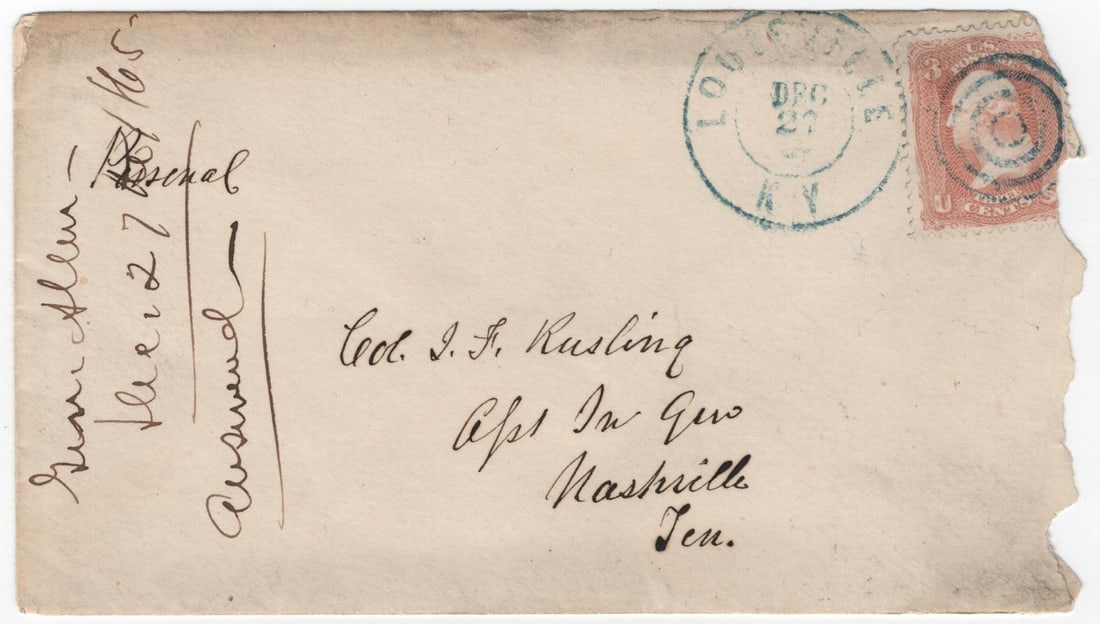 LOUISVILLE
DEC
27
KY
3
U.S.
THREE
CENTS
U S
Personal
Col. J. F. Rusling
Nashville
Ten.
Genl Allen —
Dec 27 /65
Answered